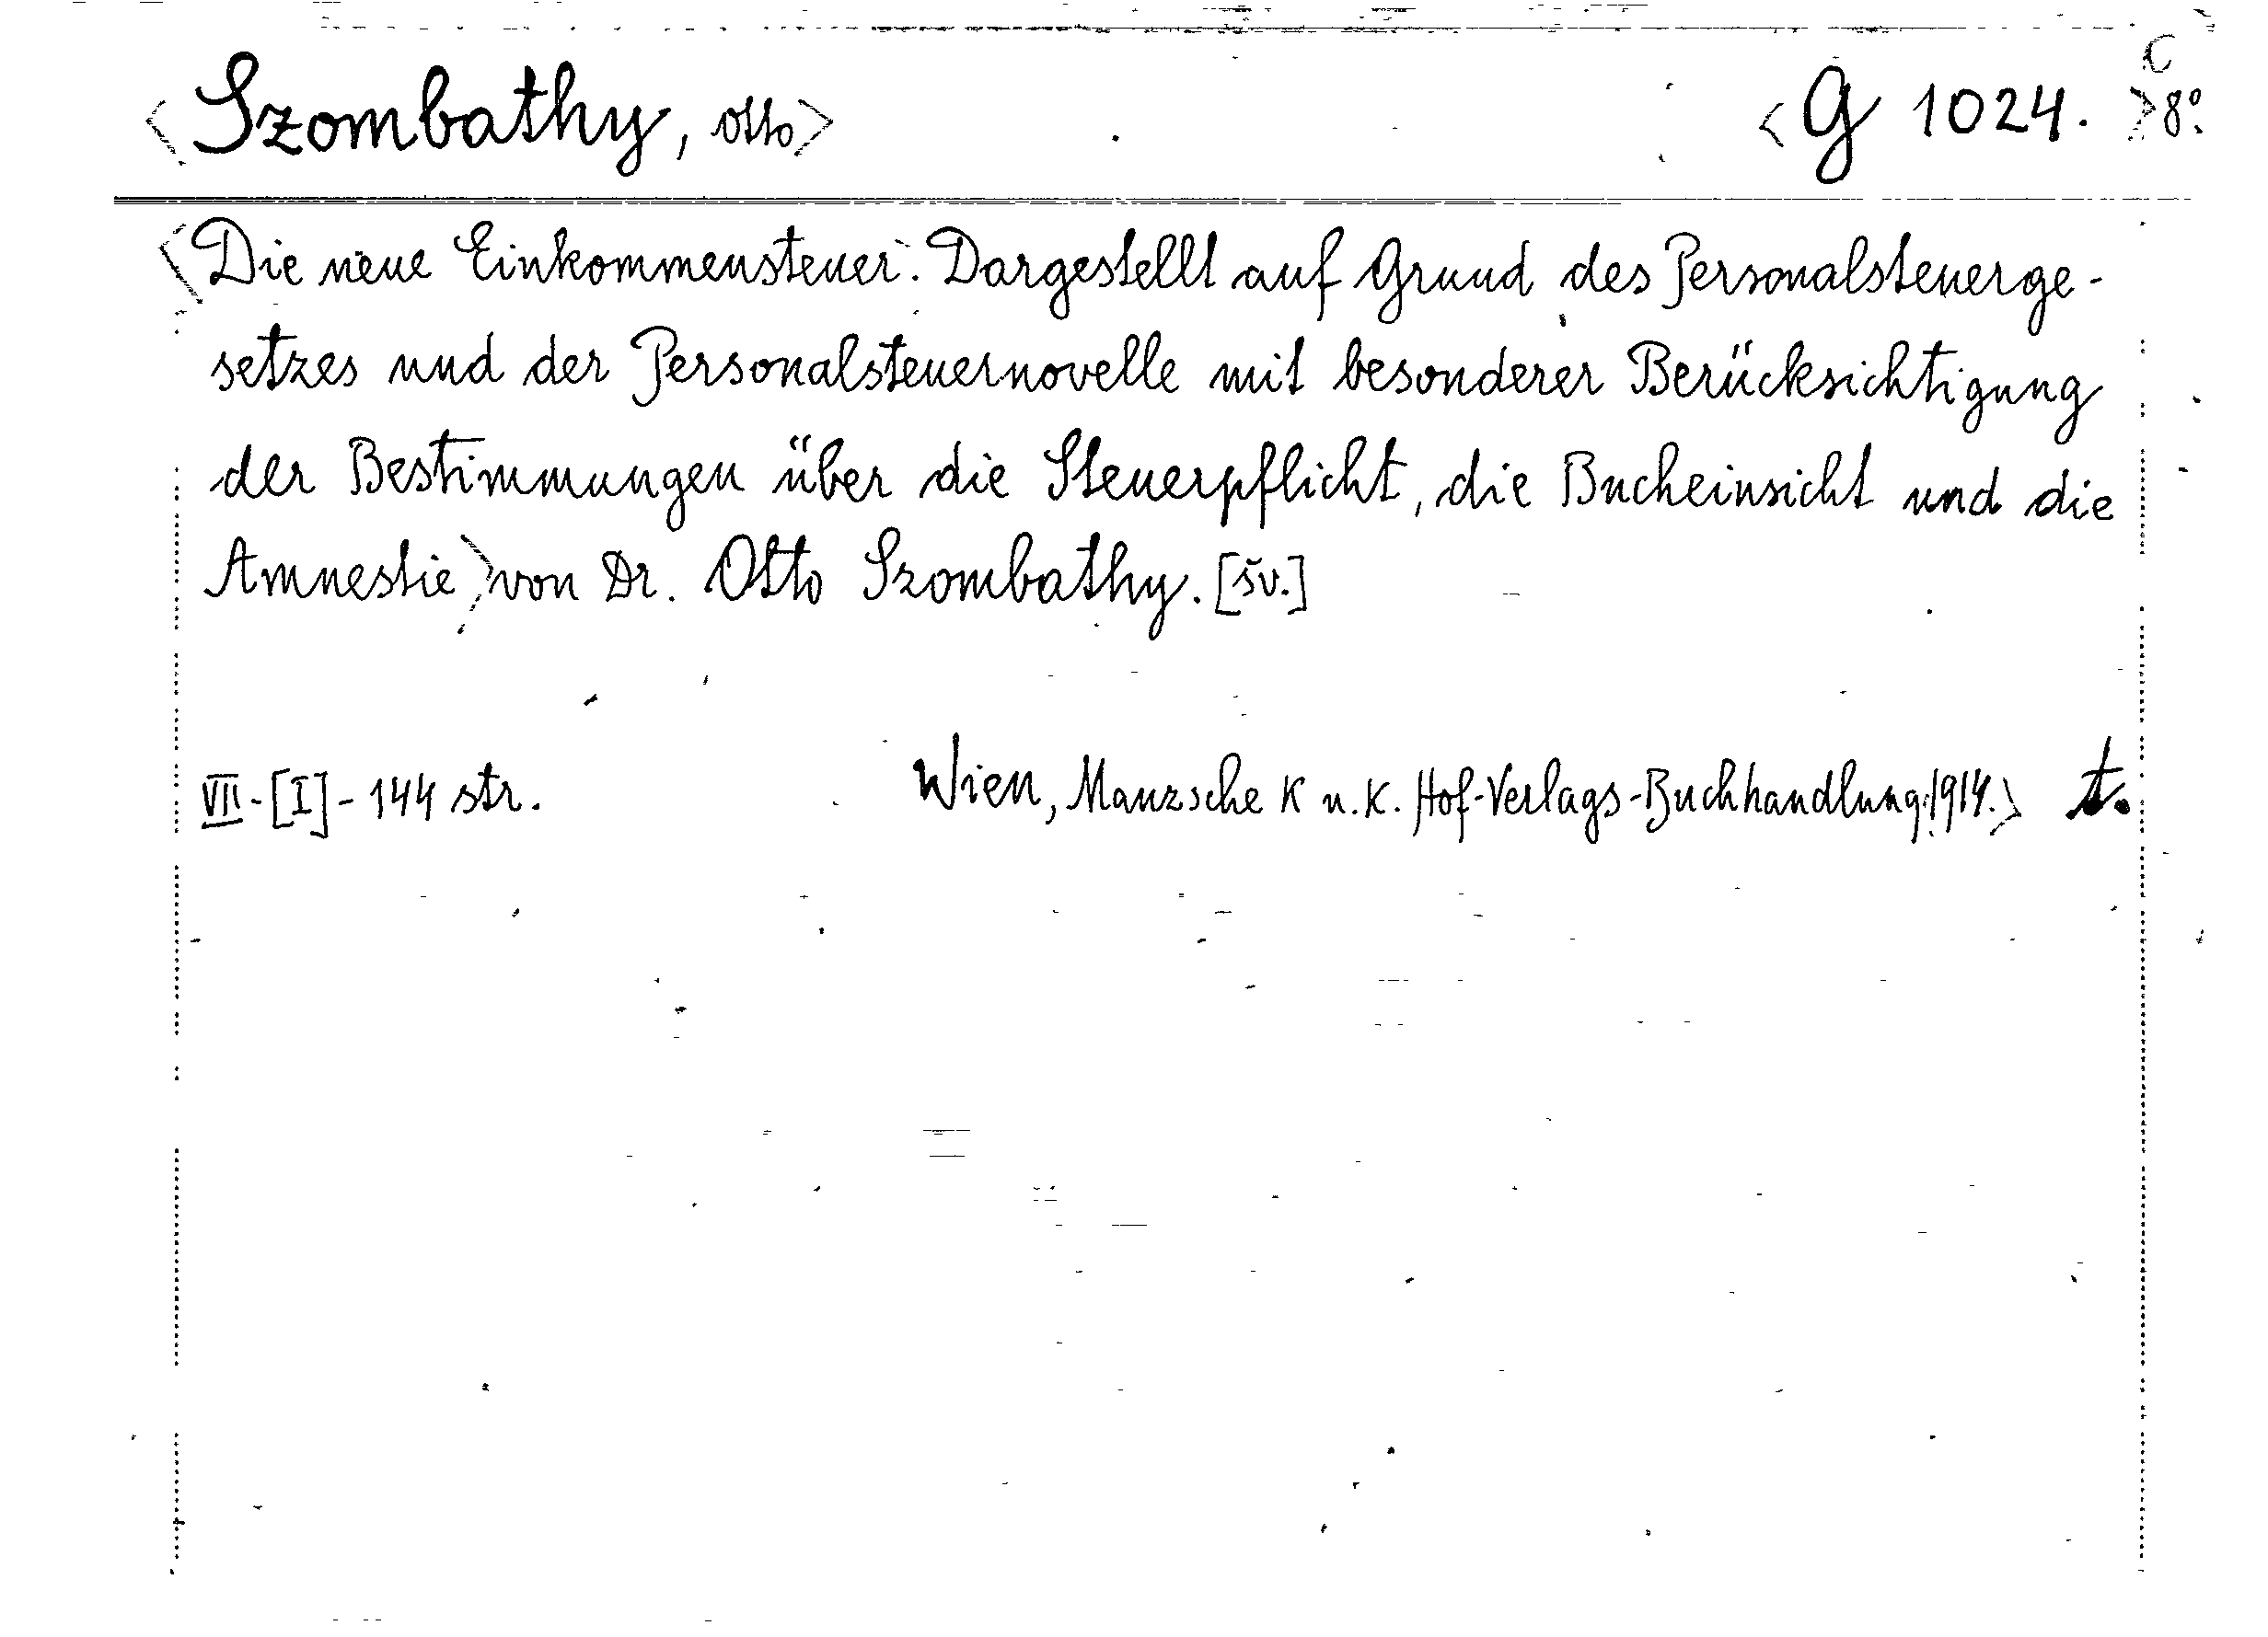 <Szombathy, Otto> <G 1024.> 8°. C
<Die neue Einkommensteuer. Dargestellt auf Grund des Personalsteuerge-
setzes und der Personalsteuernovelle mit besonderer Berücksichtigung
der Bestimmungen über die Steuerpflicht, die Bucheinsicht und die
Amnestie> von Dr. Otto Szombathy. [šv.]
VII-[I]-144 str. Wien, Manzsche K u. K. Hof-Verlags-Buchhandlung 1914.> t.